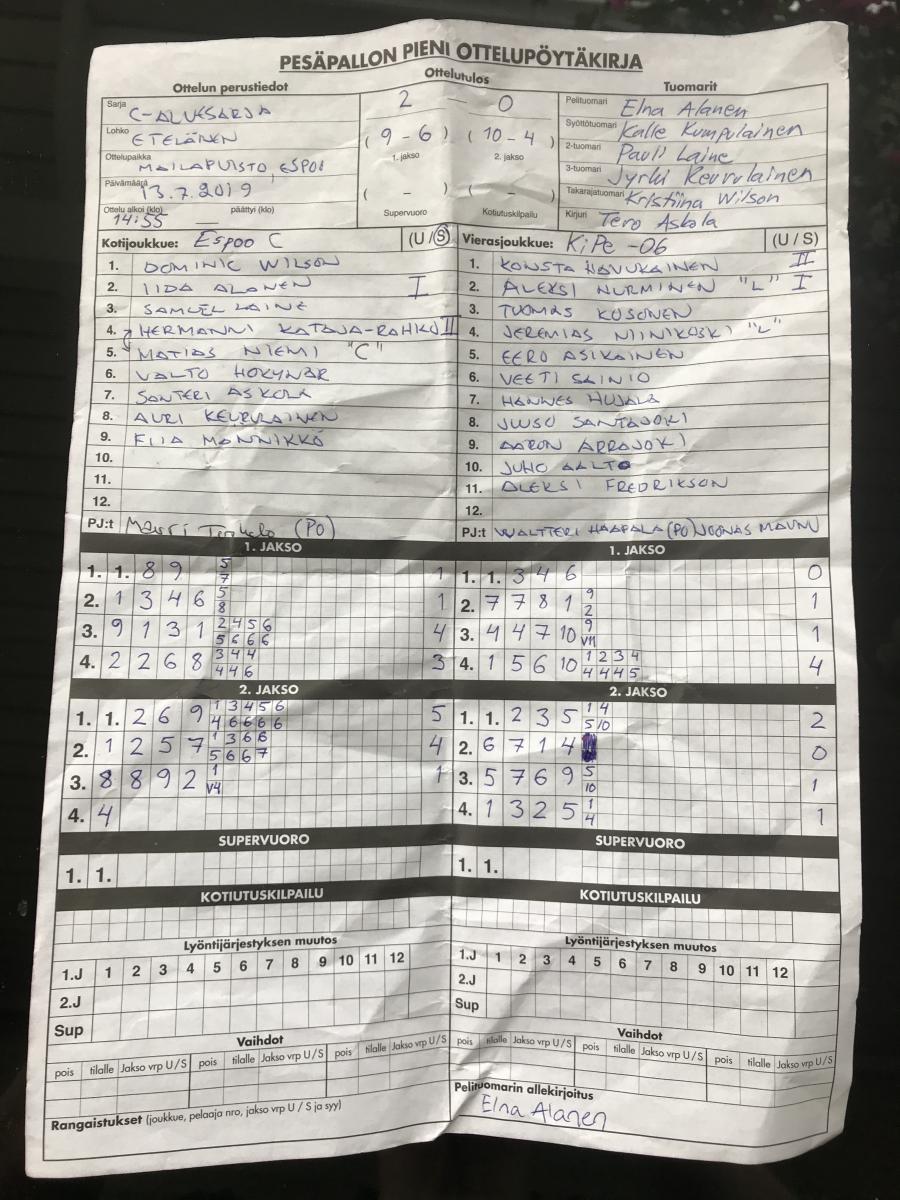 PESÄPALLON PIENI OTTELUPÖYTÄKIRJA
Ottelun perustiedot
Sarja C-ALUESARJA
Lohko ETELÄINEN
Ottelupaikka MAILAPUISTO, ESPOO
Päivämäärä 13.7.2019
Ottelu alkoi (klo) 14:55 — päättyi (klo)
Ottelutulos
2 — 0
( 9 - 6 ) ( 10 - 4 )
1. jakso 2. jakso
( - ) ( - )
Supervuoro Kotiutuskilpailu
Tuomarit
Pelituomari Elna Alanen
Syöttötuomari Kalle Kumpulainen
2-tuomari Pauli Laine
3-tuomari Jyrki Keurulainen
Takarajatuomari Kristiina Wilson
Kirjuri Tero Askola
Kotijoukkue: Espoo C (U / S)
1. DOMINIC WILSON
2. IIDA ALANEN I
3. SAMUEL LAINE
4. HERMANNI KATAJA-RAHKO II
5. MATIAS NIEMI "C"
6. VALTO HOKYNAR
7. SANTERI ASKOLA
8. AURI KEURULAINEN
9. ELLA MANNIKKÖ
10.
11.
12.
PJ:t (PO)
Vierasjoukkue: KiPe -06 (U / S)
1. KONSTA HAVUKAINEN II
2. ALEKSI NURMINEN "L" I
3. TUOMAS KOSONEN
4. JEREMIAS NIINIKOSKI "L"
5. EERO ASIKAINEN
6. VEETI SAINIO
7. HANNES HUJALA
8. JUUSO SANTAJOKI
9. AARON ARRAJOKI
10. JUHO AALTO
11. ALEKSI FREDRIKSON
12.
PJ:t VALTTERI HAAPALA (PO) JOONAS MAUNU
1. JAKSO
1. 1. 8 9 5 1
7
2. 1 3 4 6 5 1
8
3. 9 1 3 1 2 4 5 6 4
5 6 6 6
4. 2 2 6 8 3 4 4 3
4 4 6
2. JAKSO
1. 1. 2 6 9 1 3 4 5 6 5
4 6 6 6 6
2. 1 2 5 7 1 3 6 6 4
5 6 6 7
3. 8 8 9 2 1 1
V4
4. 4
SUPERVUORO
1. 1.
KOTIUTUSKILPAILU
1. JAKSO
1. 1. 3 4 6 0
2. 7 7 8 1 9 1
2
3. 4 4 7 10 9 1
V11
4. 1 5 6 10 1 2 3 4 4
4 4 4 5
2. JAKSO
1. 1. 2 3 5 1 4 2
5 10
2. 6 7 1 4 0
3. 5 7 6 9 5 1
10
4. 1 3 2 5 1 1
4
SUPERVUORO
1. 1.
KOTIUTUSKILPAILU
Lyöntijärjestyksen muutos
1.J 1 2 3 4 5 6 7 8 9 10 11 12
2.J
Sup
Vaihdot
pois tilalle Jakso vrp U / S pois tilalle Jakso vrp U / S pois tilalle Jakso vrp U / S
Rangaistukset (joukkue, pelaaja nro, jakso vrp U / S ja syy)
Lyöntijärjestyksen muutos
1.J 1 2 3 4 5 6 7 8 9 10 11 12
2.J
Sup
Vaihdot
pois tilalle Jakso vrp U / S pois tilalle Jakso vrp U / S pois tilalle Jakso vrp U / S
Pelituomarin allekirjoitus
Elna Alanen